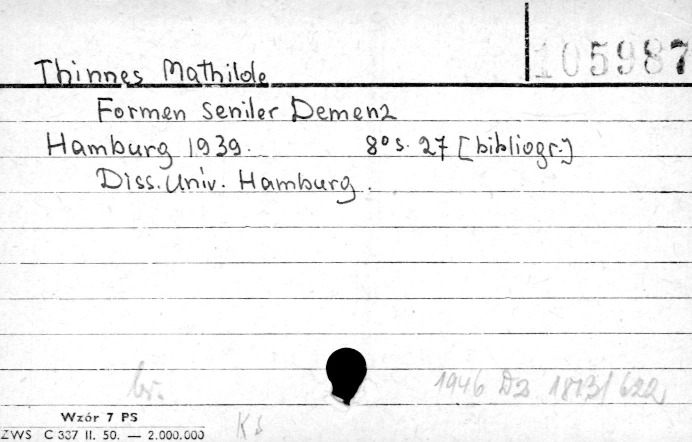 105987
Thinnes Mathilde
Formen seniler Demenz
Hamburg 1939. 8° s. 27 [bibliogr.]
Diss. Univ. Hamburg.
br.
1946 Dz 1873/622
Wzór 7 PS
ZWS C 337 II. 50. — 2.000.000